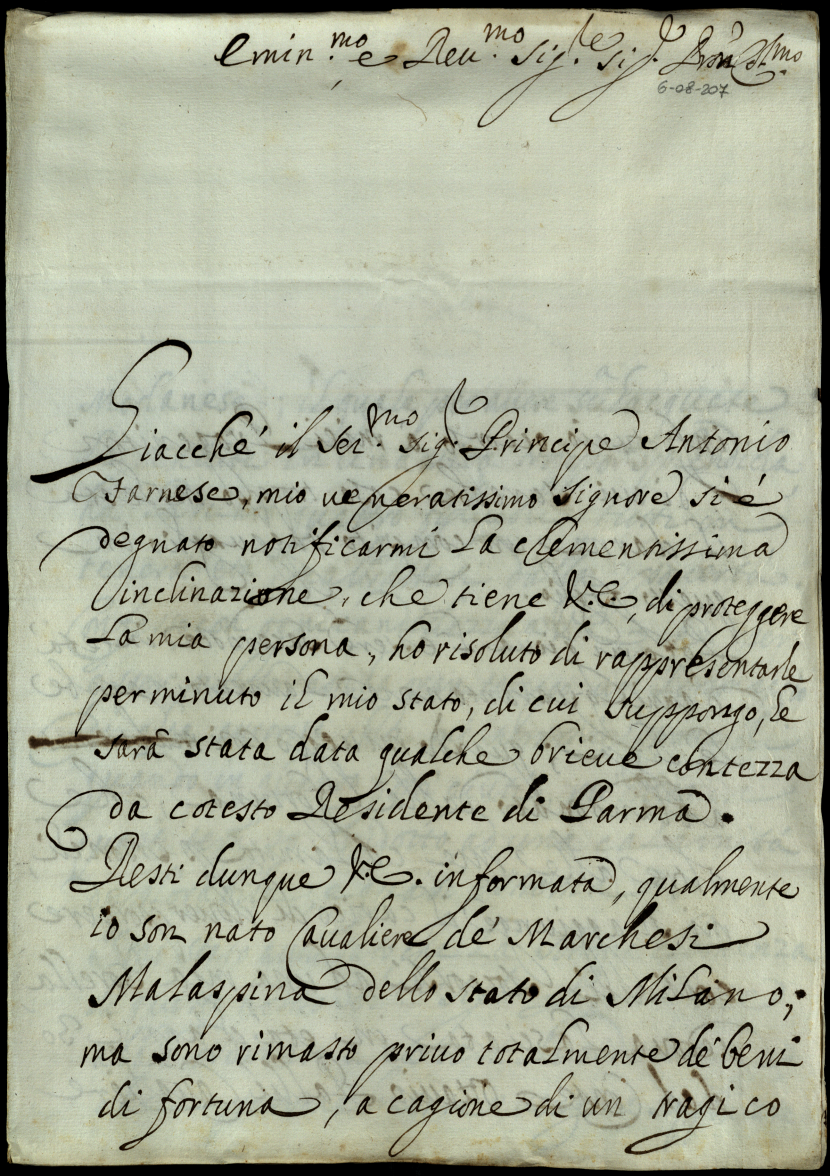 Emin.mo e Reu.mo Sig.re Sig.r Pron Col.mo
6-08-207
Giacché il Ser.mo Sig.r Principe Antonio
Farnese, mio veneratissimo Signore si é
degnato notificarmi La clementissima
inclinazione, che tiene V.E., di proteggere
La mia persona, ho risoluto di rappresentarle
per minuto il mio stato, di cui suppongo, Le
sarà stata data qualche brieue contezza
da cotesto Residente di Parma.
Resti dunque V.E. informata, qualmente
io son nato Caualiere de' Marchesi
Malaspina dello stato di Milano,
ma sono rimasto priuo totalmente de' beni
di fortuna, a cagione di un tragico